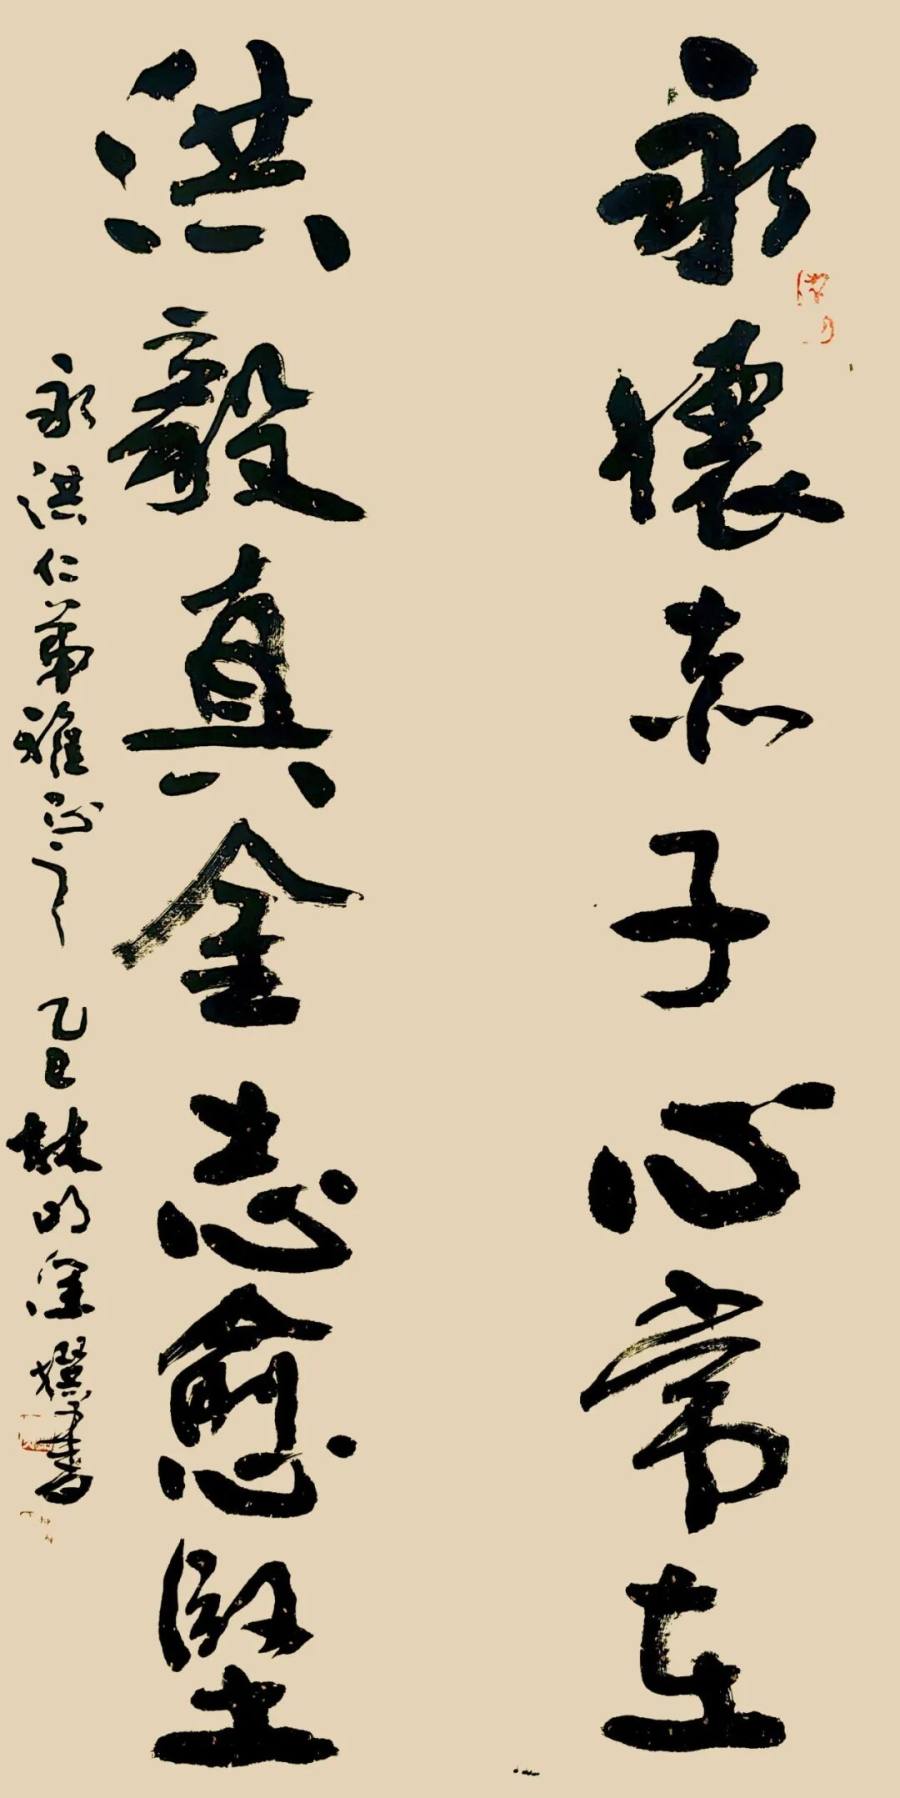 永懷赤子心常在
洪毅真金志愈堅
永洪仁弟雅正之 乙巳林明深撰書